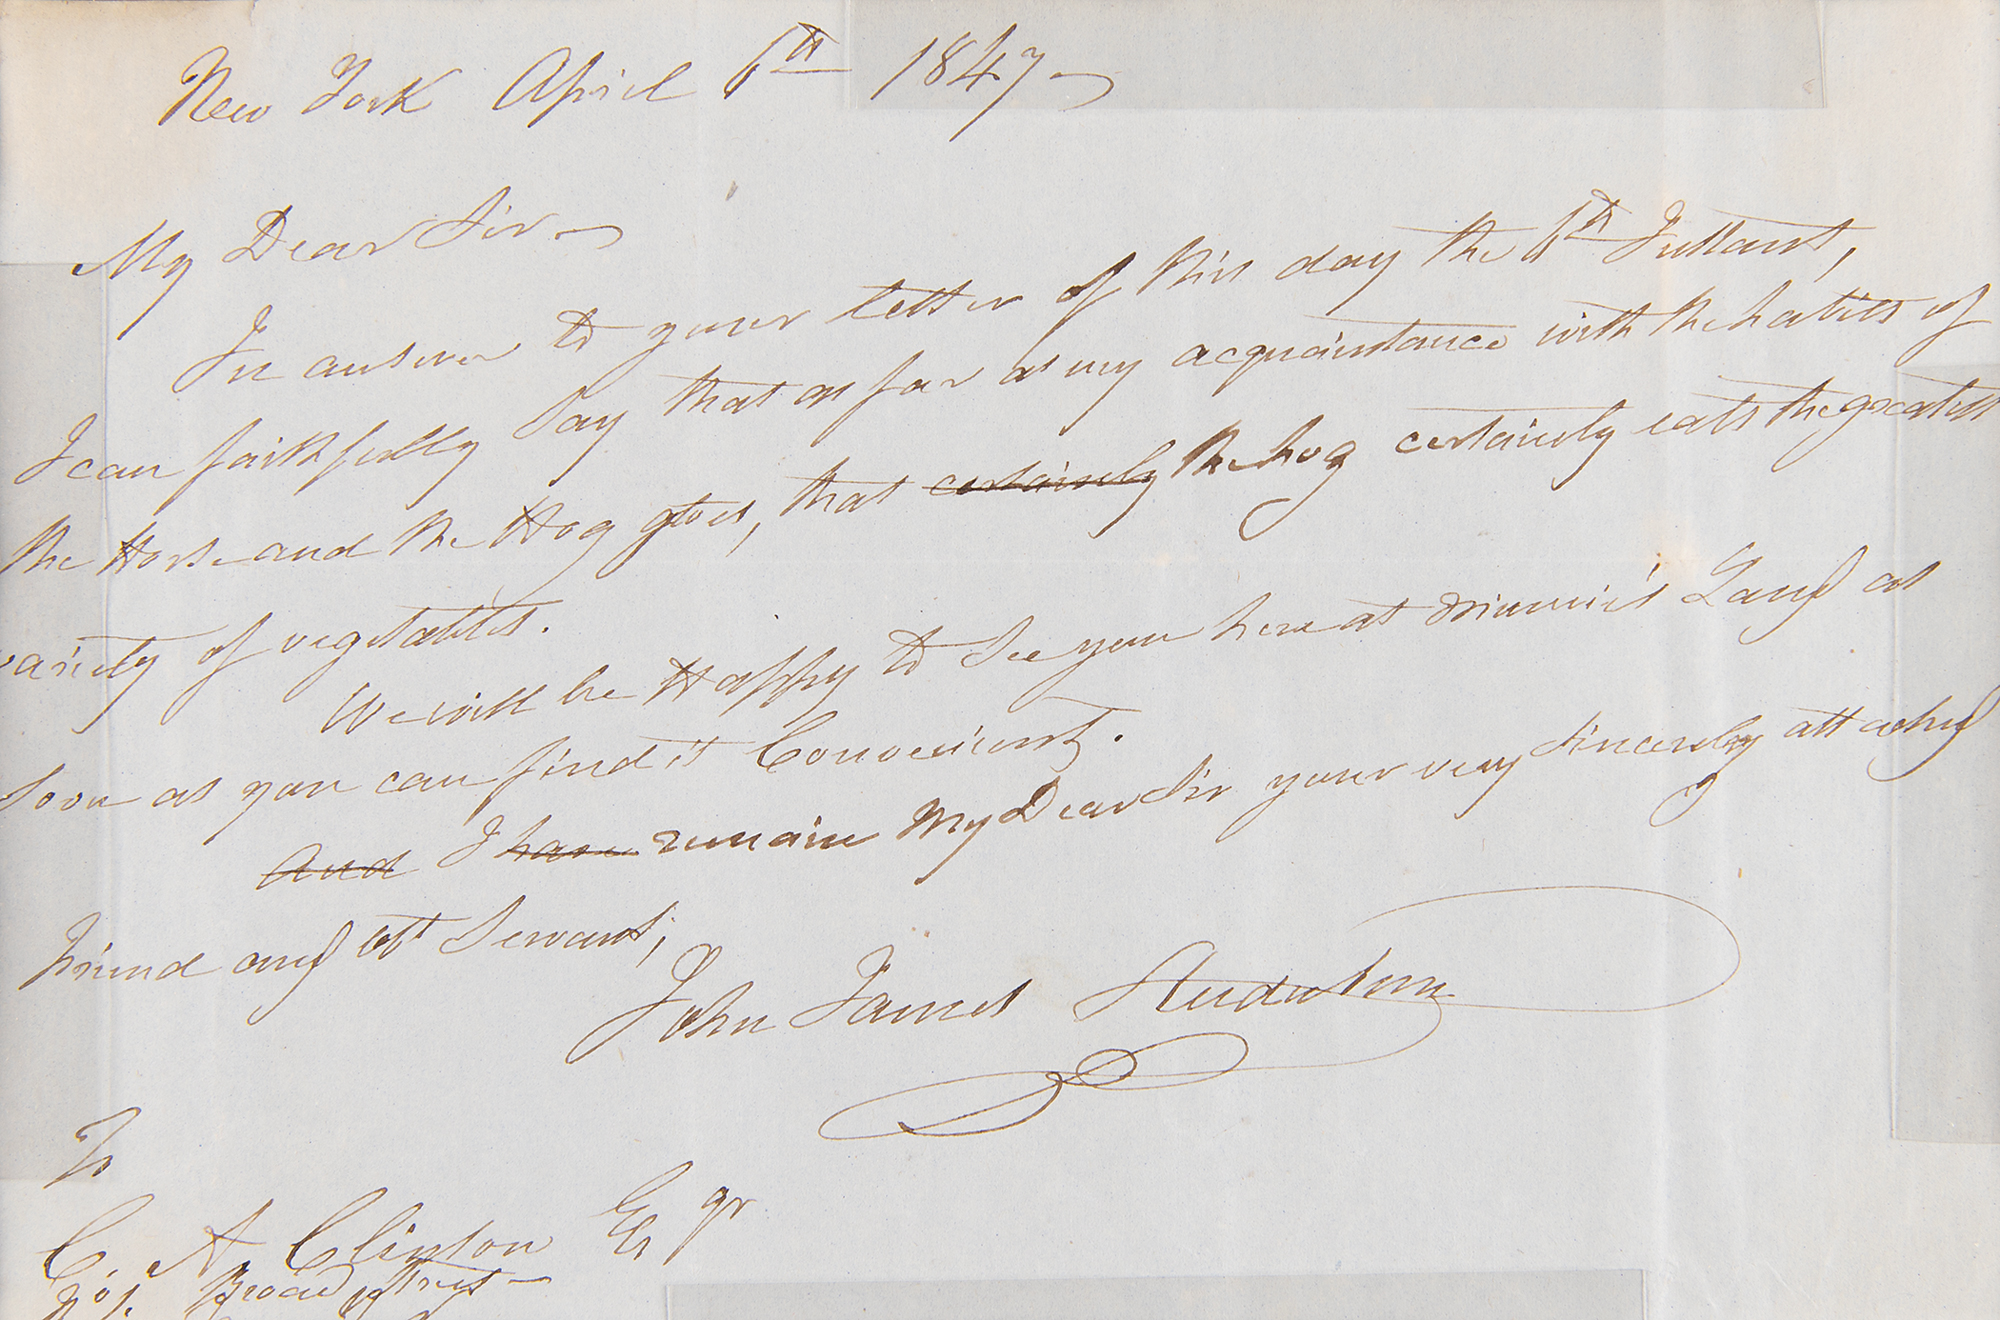 New York April 6th 1847
My Dear Sir
In answer to your letter of this day the 6th Instant,
I can faithfully say that as far as my acquaintance with the habits of
the Horse and the Hog goes, that certainly the hog certainly eats the greatest
variety of vegetables.
We will be Happy to See you here at Minnie's Land as
Soon as you can find it Convenient.
And I have remain My Dear Sir your very Sincerely attached
friend and obt Servant,
John James Audubon
To
C. A. Clinton Esqr
No 1. Broad Street